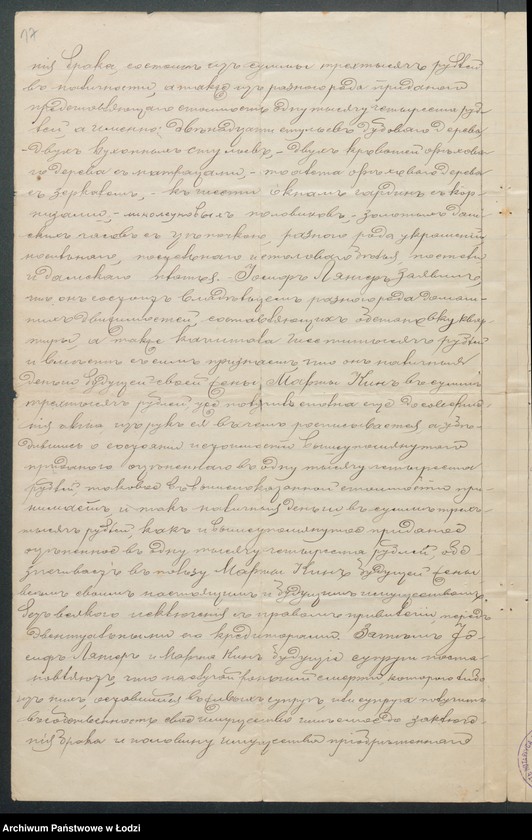 17
нія брака, состоитъ изъ суммы трехъ тысячъ рублей
въ наличности, а также изъ разнаго рода приданаго
представляющаго стоимость одну тысячу четыреста руб-
лей, а именно: двѣнадцати стульевъ дубоваго дерева,
- двухъ кухонныхъ стульевъ, - двухъ кроватей орѣхова-
го дерева съ матрацами, - туалета орѣховаго дерева
съ зеркаломъ, - къ шести окнамъ гардинъ съ кар-
низами, - половиковъ, - золотыхъ дам-
скихъ часовъ съ цѣпочкою, разнаго рода украшеній
постельнаго, носильнаго и столоваго бѣлья, постели
и дамскаго платья. Іосифъ Ляхеръ заявилъ,
что онъ состоитъ владѣльцемъ разнаго рода домаш-
нихъ движимостей, составляющихъ обстановку квар-
тиры, а также капитала шести тысячъ рублей
и вмѣстѣ съ симъ признаетъ что онъ наличныя
деньги будущей своей жены Марты Кинъ въ суммѣ
трехъ тысячъ рублей уже получилъ сполна еще до совер-
нія акта изъ рукъ ея въ чемъ росписывается а убѣ-
дившись о состояніи и стоимости вышеупомянутаго
приданаго оцѣненнаго въ одну тысячу четыреста
рублей, таковое въ вышесказанной стоимости при-
нимаетъ, и такъ наличныя деньги въ суммѣ трехъ
тысячъ рублей какъ и вышеупомянутое приданое
оцѣненное въ одну тысячу четыреста рублей, обез-
печиваетъ въ пользу Марты Кинъ будущей жены
всѣмъ своимъ настоящимъ и будущимъ имуществомъ,
безъ всякаго исключенія съ правомъ привилегіи передъ
его кредиторами. Затѣмъ Іо-
сифъ Ляхеръ и Марта Кинъ будущіе супруги поста-
новляютъ, что на случай смерти котораго либо
изъ нихъ оставшійся въ живыхъ супругъ или супруга получитъ
въ собственность свое имущество имѣемое до заключе-
нія брака и половину имущества пріобрѣтеннаго
Archiwum Państwowe w Łodzi